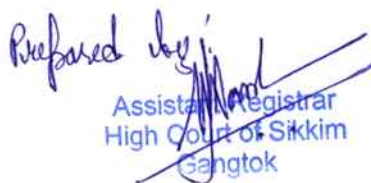 Prepared by
Assistant Registrar
High Court of Sikkim
Gangtok